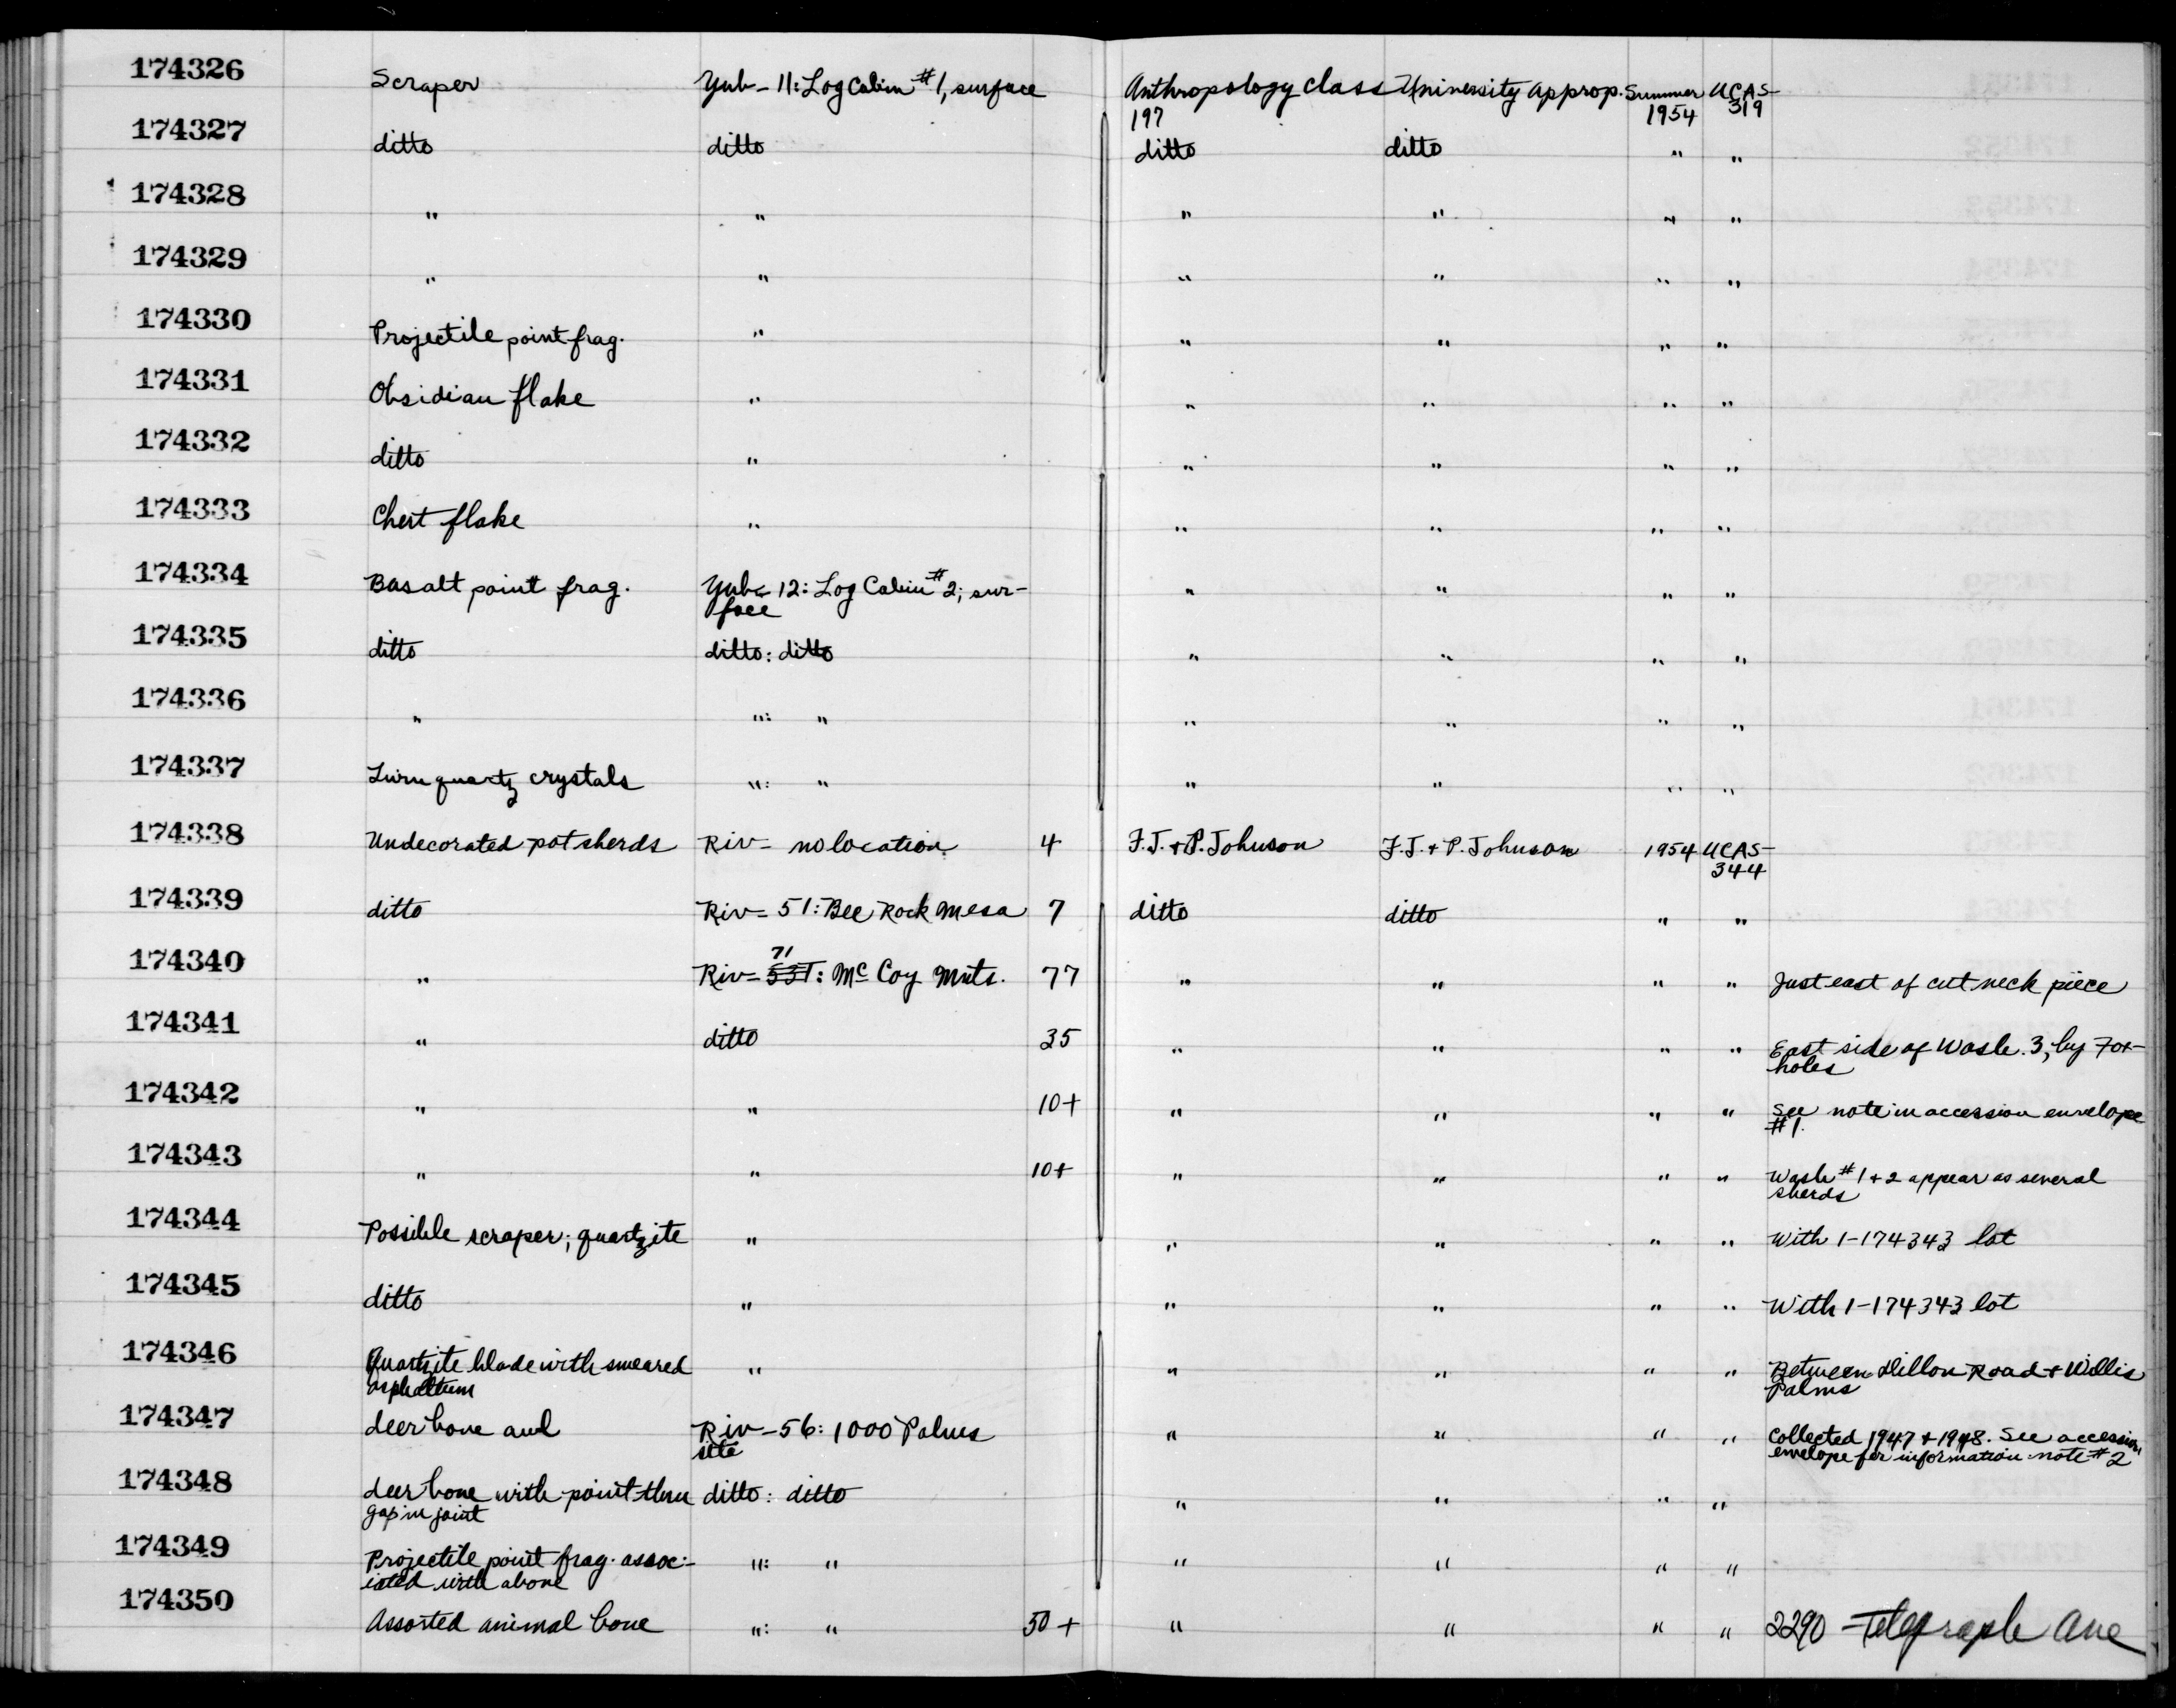 174326 Scraper Yub-11: Log Cabin #1, surface Anthropology Class University Approp. Summer UCAS-
197 1954 319
174327 ditto ditto ditto ditto " "
174328 " " " " " "
174329 " " " " " "
174330 Projectile point frag. " " " " "
174331 Obsidian flake " " " " "
174332 ditto " " " " "
174333 Chert flake " " " " "
174334 Basalt point frag. Yub-12: Log Cabin #2; sur- " " " "
face
174335 ditto ditto: ditto " " " "
174336 " ": " " " " "
174337 quartz crystals ": " " " " "
174338 Undecorated pot sherds Riv- no location 4 F.J. + P. Johnson F.J. + P. Johnson 1954 UCAS-
344
174339 ditto Riv-51: Bee Rock Mesa 7 ditto ditto " "
71
174340 " Riv-: McCoy Mnts. 77 " " " " Just east of cut neck piece
174341 " ditto 35 " " " " East side of Wash. 3, by Fox-
holes
174342 " " 10+ " " " " See note in accession envelope
#1.
174343 " " 10+ " " " " Wash #1+2 appear as several
sherds
174344 Possible scraper; quartzite " " " " " With 1-174343 lot
174345 ditto " " " " " With 1-174343 lot
174346 Quartzite blade with smeared " " " " " Between Dillon Road + Willis
asphaltum Palms
174347 deer bone awl Riv-56: 1000 Palms " " " " Collected 1947 + 1948. See accession
site envelope for information note #2
174348 deer bone with point thru ditto: ditto " " " "
gap in joint
174349 Projectile point frag. assoc- ": " " " " "
iated with above
174350 Assorted animal bone ": " 50+ " " " " 2290 Telegraph Ave